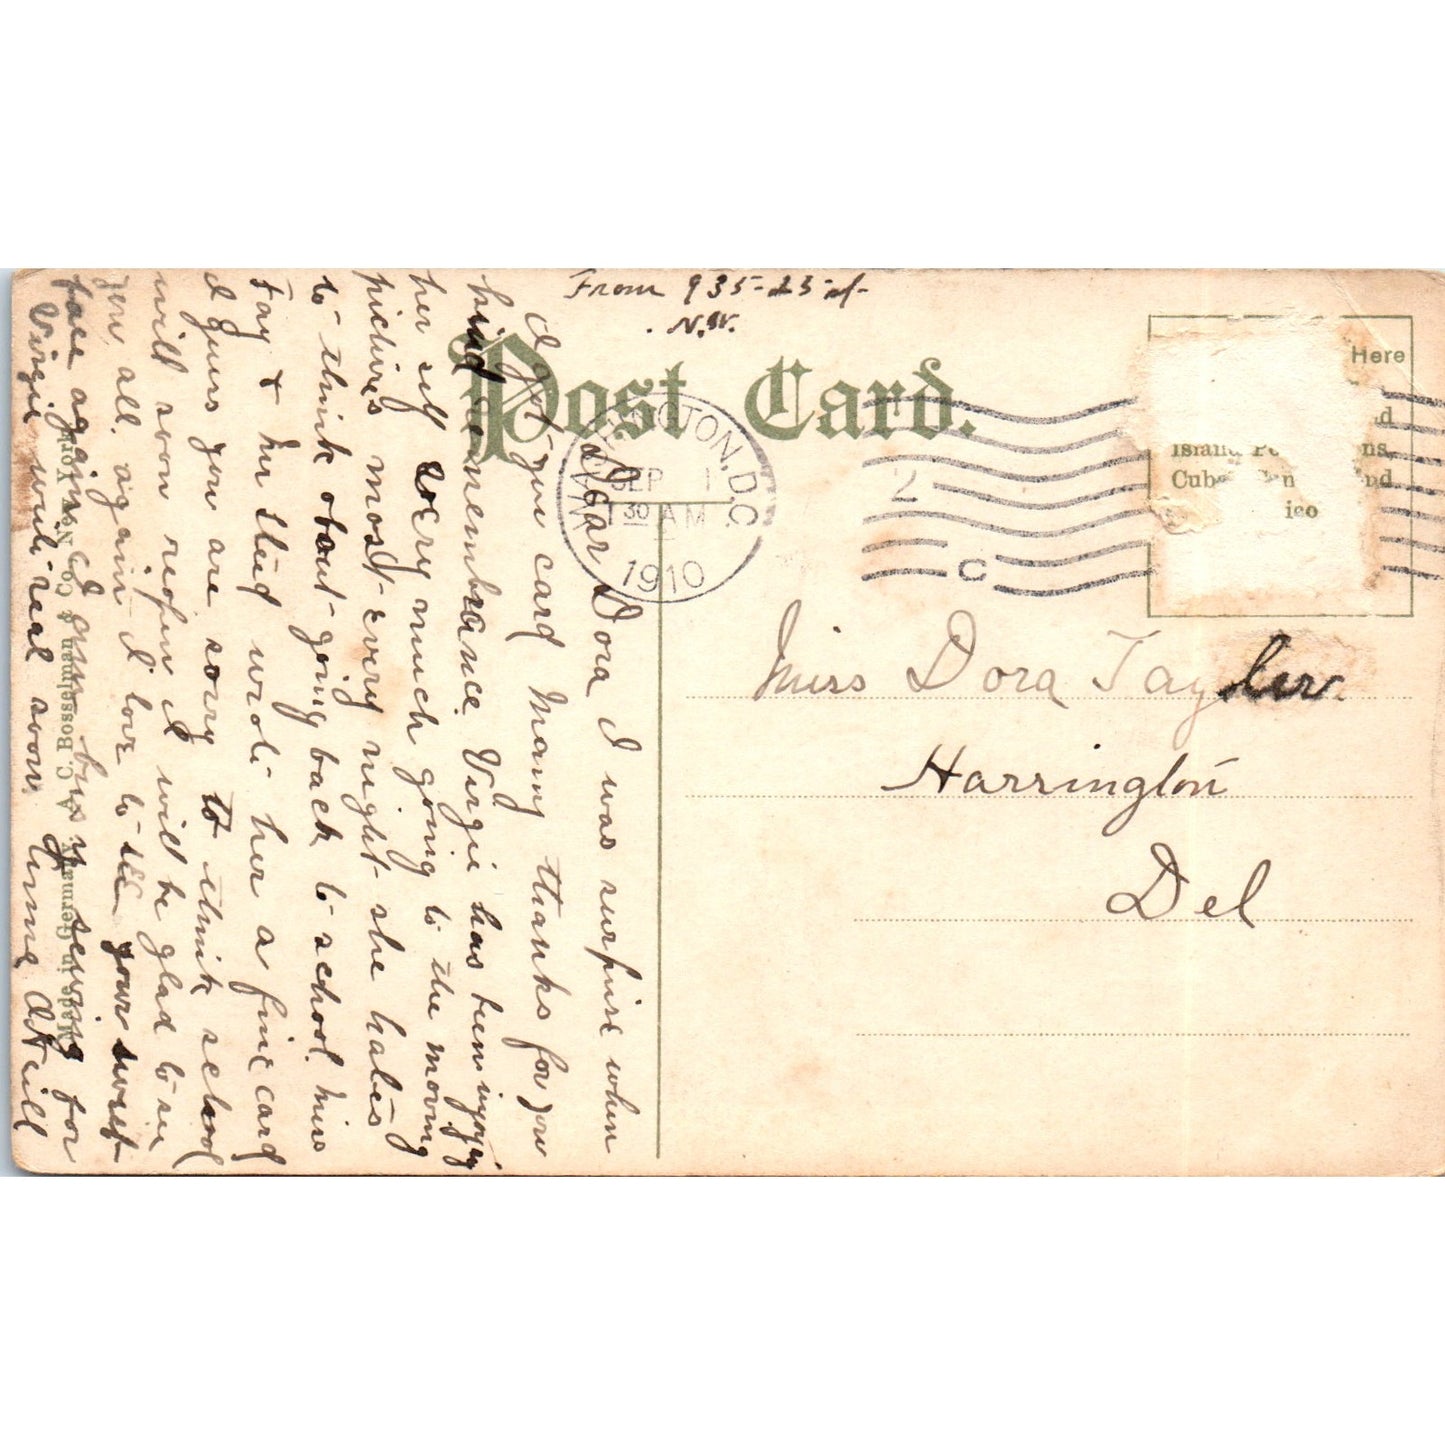 From 935-23-st-
N.W.
Post Card.
WASHINGTON, D.C.
SEP 1
30 AM
1910
2
C
Here
Island Pos ns,
Cuba, Can nd
ico
Miss Dora Taylor
Harrington
Del
Dear Dora I was surprise when
I got you card many thanks for you
kind rememberance. Virgie has been injoying
her self very much going to the moving
pictures most every night she hates
to think about going back to school. miss
Fay & her sted wrote her a fine card
I guess you are sorry to think school
will soon reopen I will be glad to see
you all again I love to see your sweet
face again I am busy sewing for
Virgie write real soon. Anna O'Neill
Made in Germany. A. C. Bosselman & Co., New York